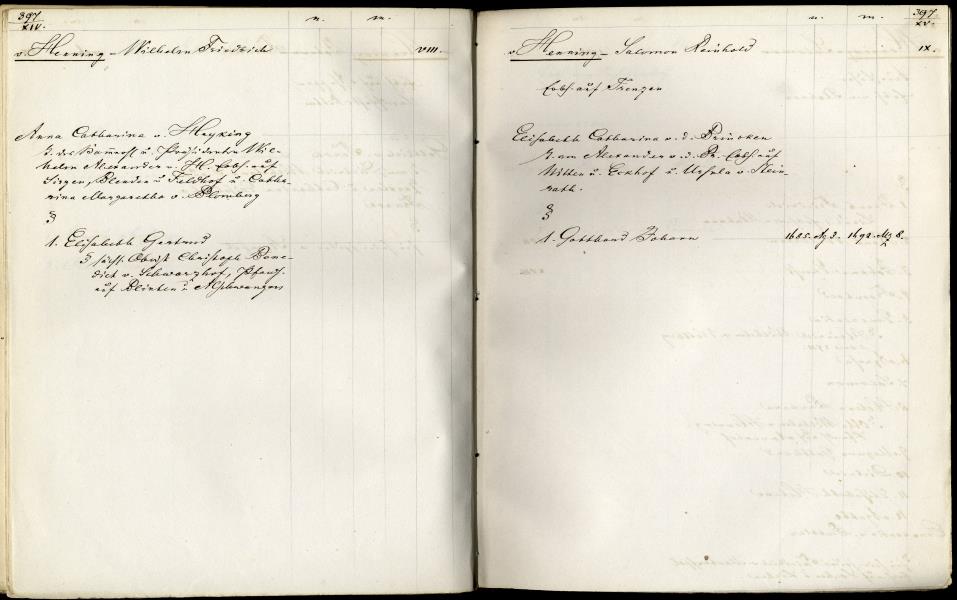 397
XIV.
n. m.
v. Henning - Wilhelm Friedrich VIII.
Anna Catharina v. Heyking
T. des und Präsidenten Wil-
helm Alexander v. H. Erbh. auf
und Feldhof u. Catha-
rina Margaretha v. Blomberg
§
1. Elisabeth Gertrud
§ sächs. Obrist Christoph Bene-
dict v. Schwarzhof, Pfandh.
auf Plinten u. Alschwangen
397
XV.
n. m.
v. Henning - Salomon Reinhold IX.
Erbh. auf Frenzen
Elisabeth Catharina v. d. Brincken
T. am Alexander v. d. Br. Erbh. auf
Wilten u. Eckhof u. Ursula v. Stein-
rath.
§
1. Gotthard Johann 1685. Az 3. 1692. Mz 8.